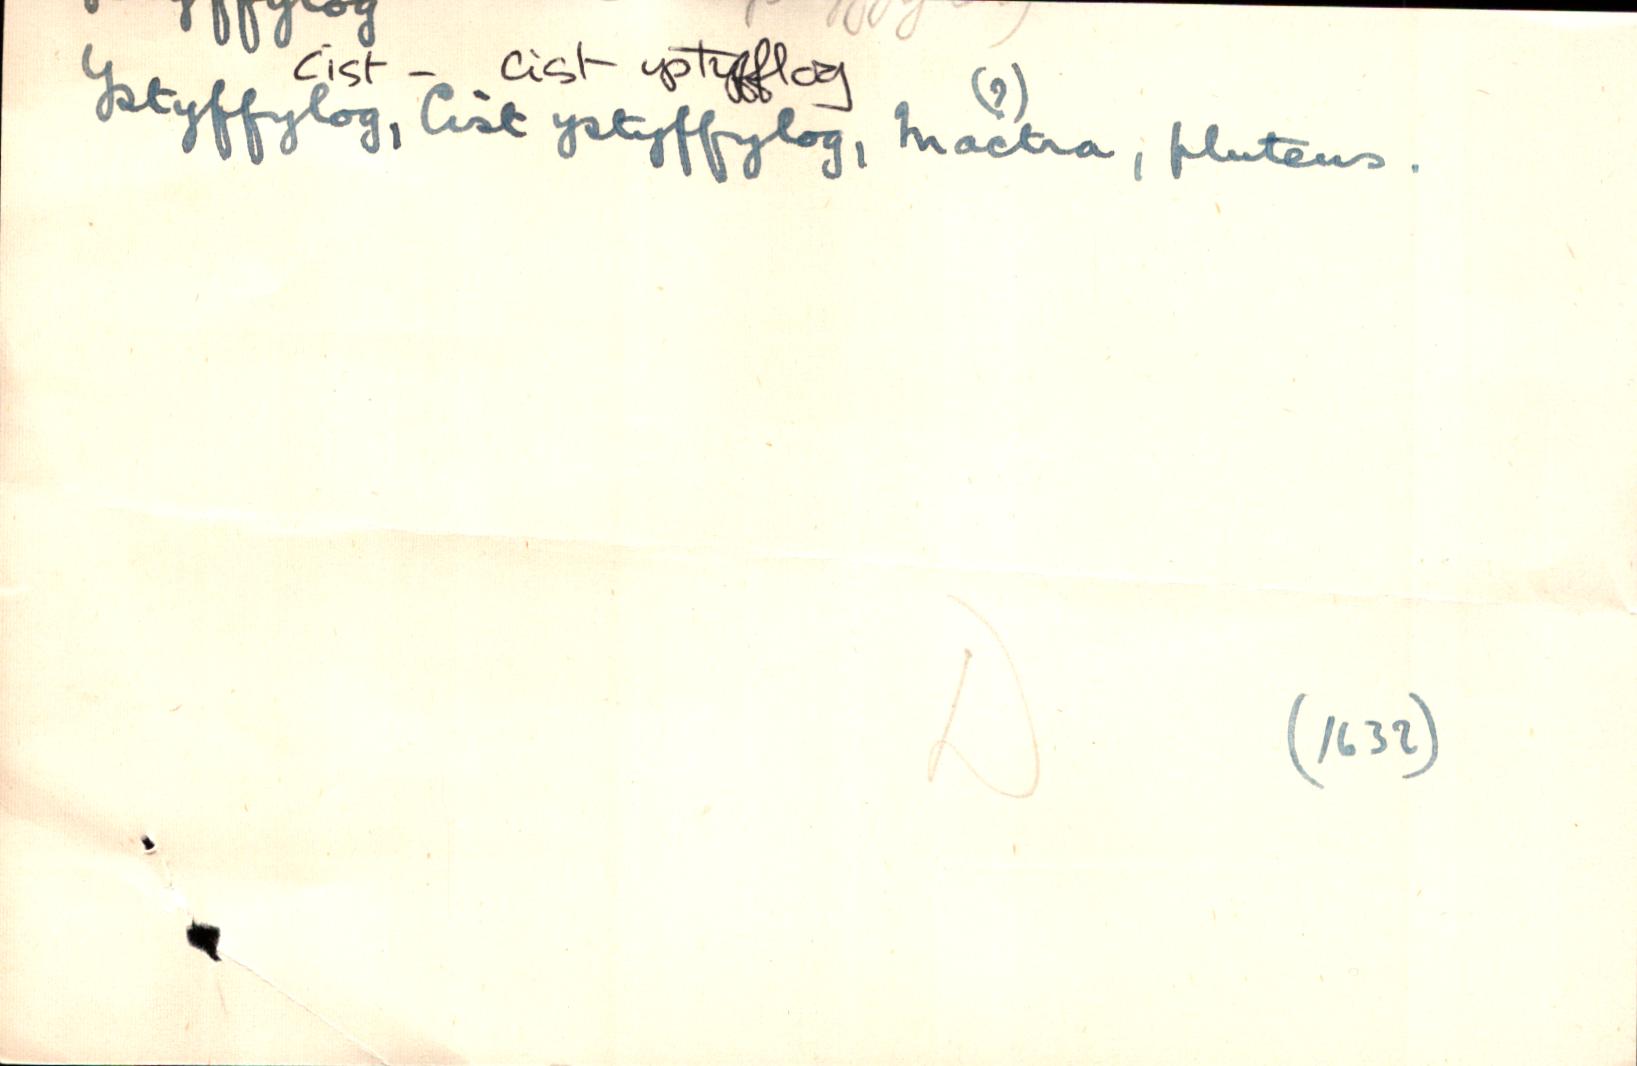 Cist - Cist ystyfflog
(?)
Ystyffylog, Cist ystyffylog, Mactra, pluteus.
D
(1632)